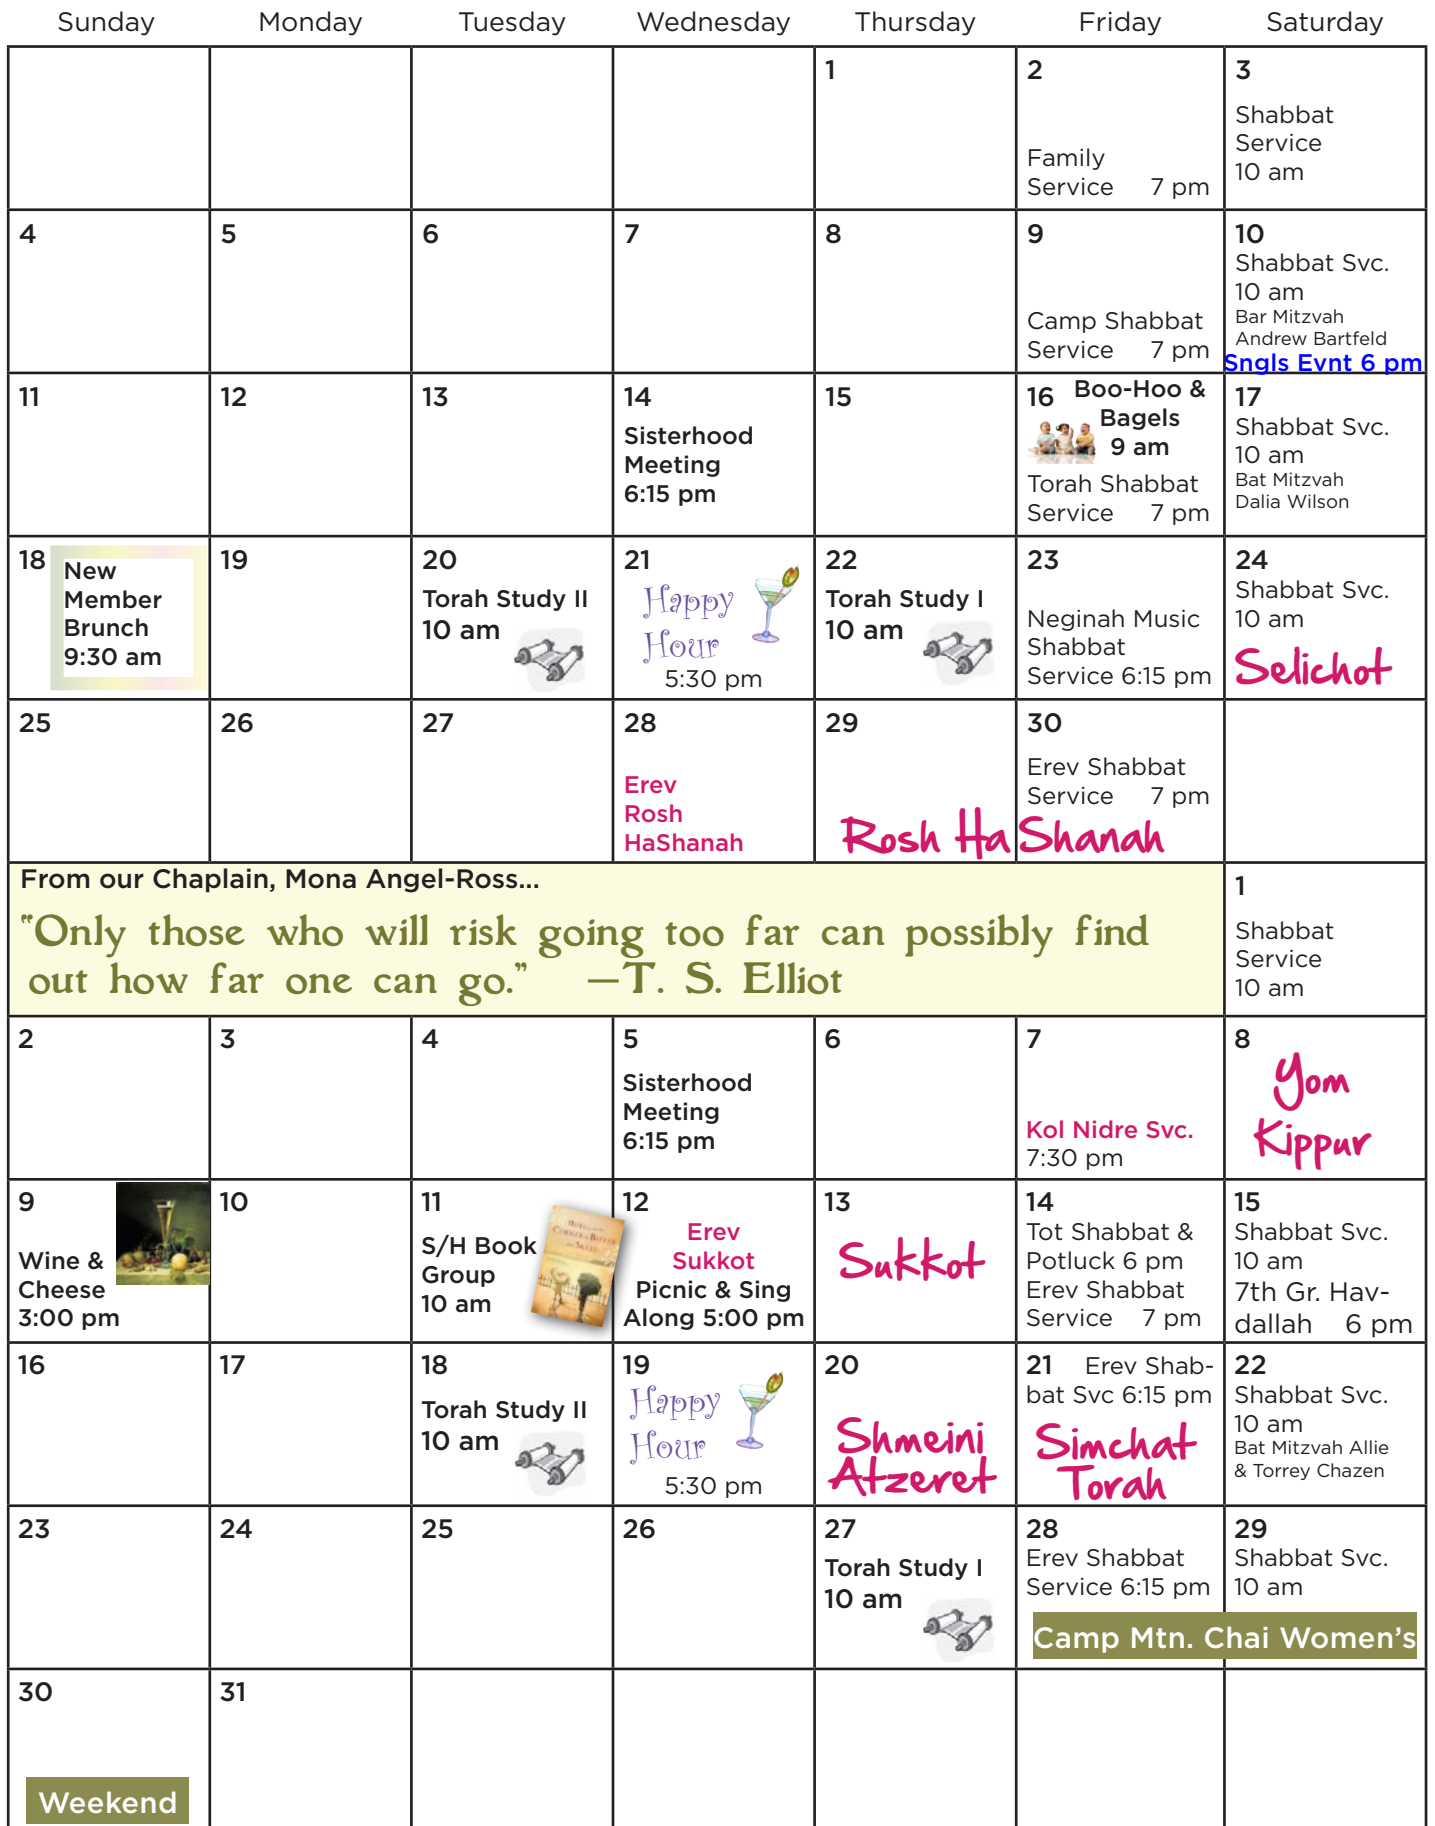 Sunday Monday Tuesday Wednesday Thursday Friday Saturday
1
2
Family
Service 7 pm
3
Shabbat
Service
10 am
4
5
6
7
8
9
Camp Shabbat
Service 7 pm
10
Shabbat Svc.
10 am
Bar Mitzvah
Andrew Bartfeld
Sngls Evnt 6 pm
11
12
13
14
Sisterhood
Meeting
6:15 pm
15
16 Boo-Hoo &
Bagels
9 am
Torah Shabbat
Service 7 pm
17
Shabbat Svc.
10 am
Bat Mitzvah
Dalia Wilson
18
New
Member
Brunch
9:30 am
19
20
Torah Study II
10 am
21
Happy
Hour
5:30 pm
22
Torah Study I
10 am
23
Neginah Music
Shabbat
Service 6:15 pm
24
Shabbat Svc.
10 am
Selichot
25
26
27
28
Erev
Rosh
HaShanah
29
30
Erev Shabbat
Service 7 pm
Rosh HaShanah
From our Chaplain, Mona Angel-Ross...
"Only those who will risk going too far can possibly find
out how far one can go." —T. S. Elliot
1
Shabbat
Service
10 am
2
3
4
5
Sisterhood
Meeting
6:15 pm
6
7
Kol Nidre Svc.
7:30 pm
8
Yom
Kippur
9
Wine &
Cheese
3:00 pm
10
11
S/H Book
Group
10 am
HOTEL on the
CORNER of BITTER
and SWEET
12
Erev
Sukkot
Picnic & Sing
Along 5:00 pm
13
Sukkot
14
Tot Shabbat &
Potluck 6 pm
Erev Shabbat
Service 7 pm
15
Shabbat Svc.
10 am
7th Gr. Hav-
dallah 6 pm
16
17
18
Torah Study II
10 am
19
Happy
Hour
5:30 pm
20
Shmeini
Atzeret
21 Erev Shab-
bat Svc 6:15 pm
Simchat
Torah
22
Shabbat Svc.
10 am
Bat Mitzvah Allie
& Torrey Chazen
23
24
25
26
27
Torah Study I
10 am
28
Erev Shabbat
Service 6:15 pm
29
Shabbat Svc.
10 am
Camp Mtn. Chai Women's
30
Weekend
31